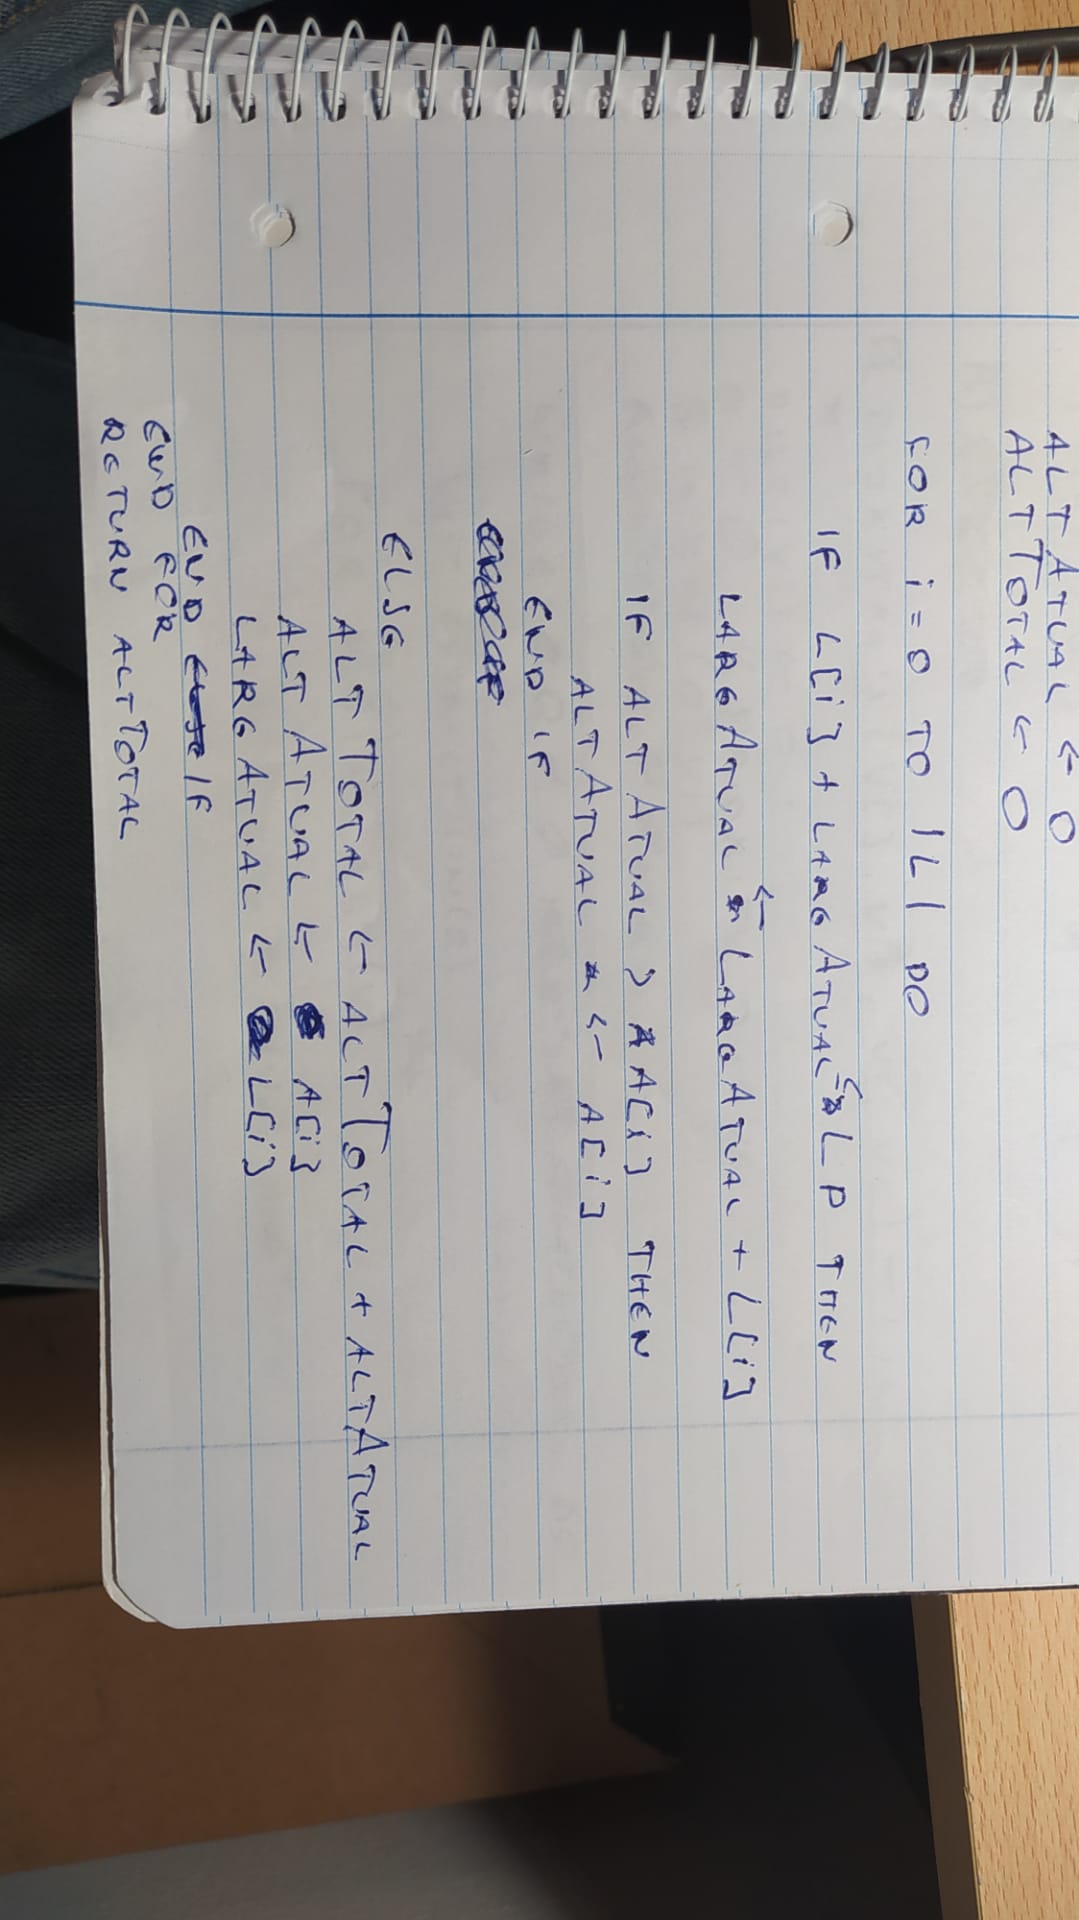 ALTATUAL ← 0
ALTTOTAL ← 0
FOR i = 0 TO |L| DO
IF L[i] + LARGATUAL <= LP THEN
LARGATUAL ← LARGATUAL + L[i]
IF ALTATUAL > A[i] THEN
ALTATUAL ← A[i]
END IF
ELSE
ALTTOTAL ← ALTTOTAL + ALTATUAL
ALTATUAL ← A[i]
LARGATUAL ← L[i]
END IF
END FOR
RETURN ALTTOTAL